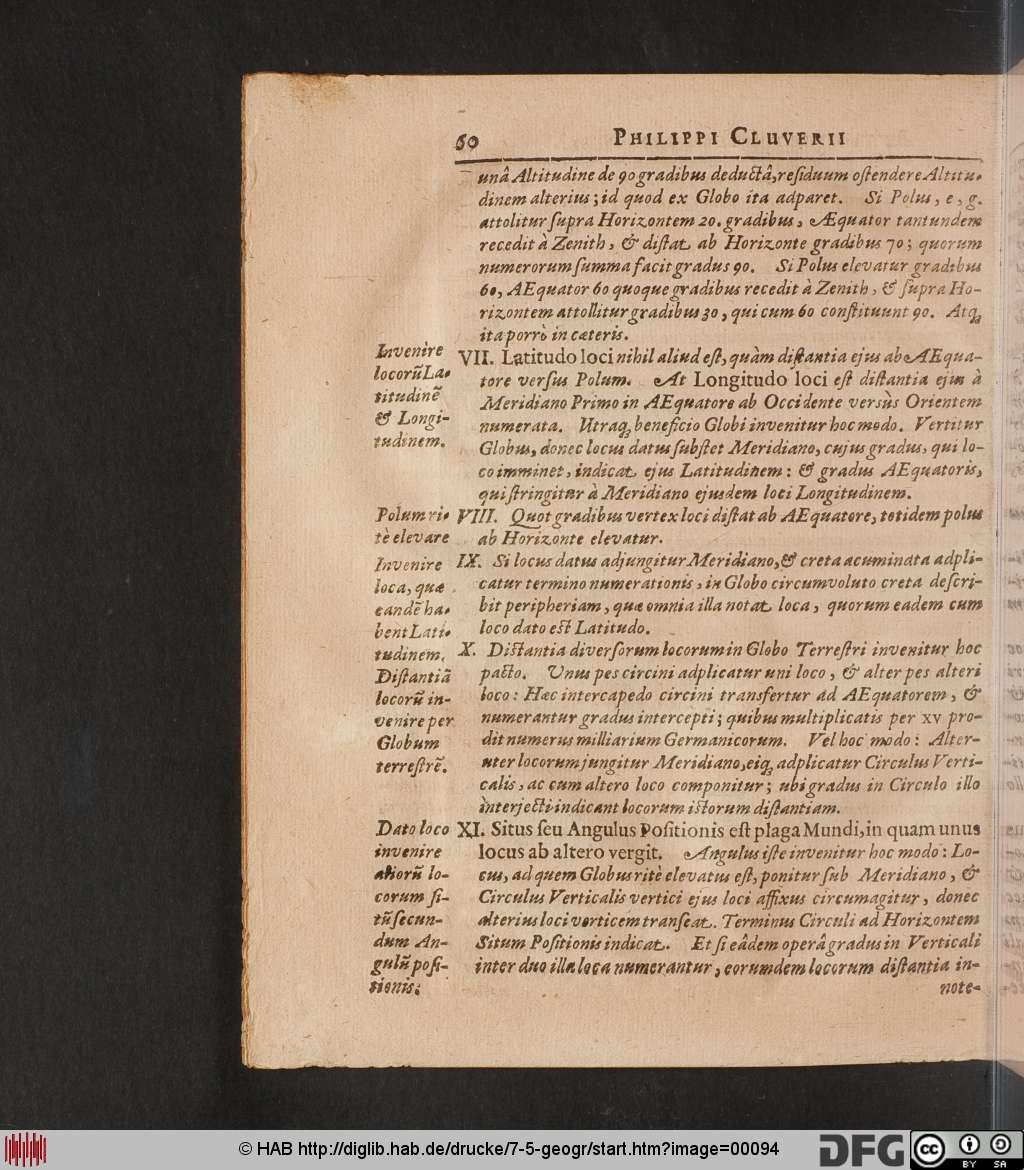 60 PHILIPPI CLUVERII
unâ Altitudine de 90 gradibus deductâ, residuum ostendere Altitu-
dinem alterius; id quod ex Globo ita adparet. Si Polus, e, g.
attolitur supra Horizontem 20. gradibus, Æquator tantundem
recedit à Zenith, & distat ab Horizonte gradibus 70; quorum
numerorum summa facit gradus 90. Si Polus elevatur gradibus
60, AEquator 60 quoque gradibus recedit à Zenith, & supra Ho-
rizontem attollitur gradibus 30, qui cum 60 constituunt 90. Atq;
ita porrò in cæteris.
Invenire
locorũ La-
titudinẽ
& Longi-
tudinem.
VII. Latitudo loci nihil aliud est, quàm distantia ejus ab AEqua-
tore versus Polum. At Longitudo loci est distantia ejus à
Meridiano Primo in AEquatore ab Occidente versùs Orientem
numerata. Utraq; beneficio Globi invenitur hoc modo. Vertitur
Globus, donec locus datus substet Meridiano, cujus gradus, qui lo-
co imminet, indicat ejus Latitudinem: & gradus AEquatoris,
qui stringitur à Meridiano ejusdem loci Longitudinem.
Polum ri-
tè elevare
VIII. Quot gradibus vertex loci distat ab AEquatore, totidem polus
ab Horizonte elevatur.
Invenire
loca, quæ
eandẽ ha-
bent Lati-
tudinem.
IX. Si locus datus adjungitur Meridiano, & creta acuminata adpli-
catur termino numerationis, in Globo circumvoluto creta descri-
bit peripheriam, quæ omnia illa notat loca, quorum eadem cum
loco dato est Latitudo.
Distantiã
locorũ in-
venire per
Globum
terrestrẽ.
X. Distantia diversorum locorum in Globo Terrestri invenitur hoc
pacto. Unus pes circini adplicatur uni loco, & alter pes alteri
loco: Hæc intercapedo circini transfertur ad AEquatorem, &
numerantur gradus intercepti; quibus multiplicatis per XV pro-
dit numerus milliarium Germanicorum. Vel hoc modo: Alter-
uter locorum jungitur Meridiano, eiq; adplicatur Circulus Verti-
calis, ac cum altero loco componitur; ubi gradus in Circulo illo
interjecti indicant locorum istorum distantiam.
Dato loco
invenire
aliorũ lo-
corum si-
tũ secun-
dum An-
gulũ posi-
tionis.
XI. Situs seu Angulus Positionis est plaga Mundi, in quam unus
locus ab altero vergit. Angulus iste invenitur hoc modo: Lo-
cus, ad quem Globus ritè elevatus est, ponitur sub Meridiano, &
Circulus Verticalis vertici ejus loci affixus circumagitur, donec
alterius loci verticem transeat. Terminus Circuli ad Horizontem
Situm Positionis indicat. Et si eâdem operâ gradus in Verticali
inter duo illa loca numerantur, eorumdem locorum distantia in-
note-
© HAB http://diglib.hab.de/drucke/7-5-geogr/start.htm?image=00094
DFG
cc
BY SA